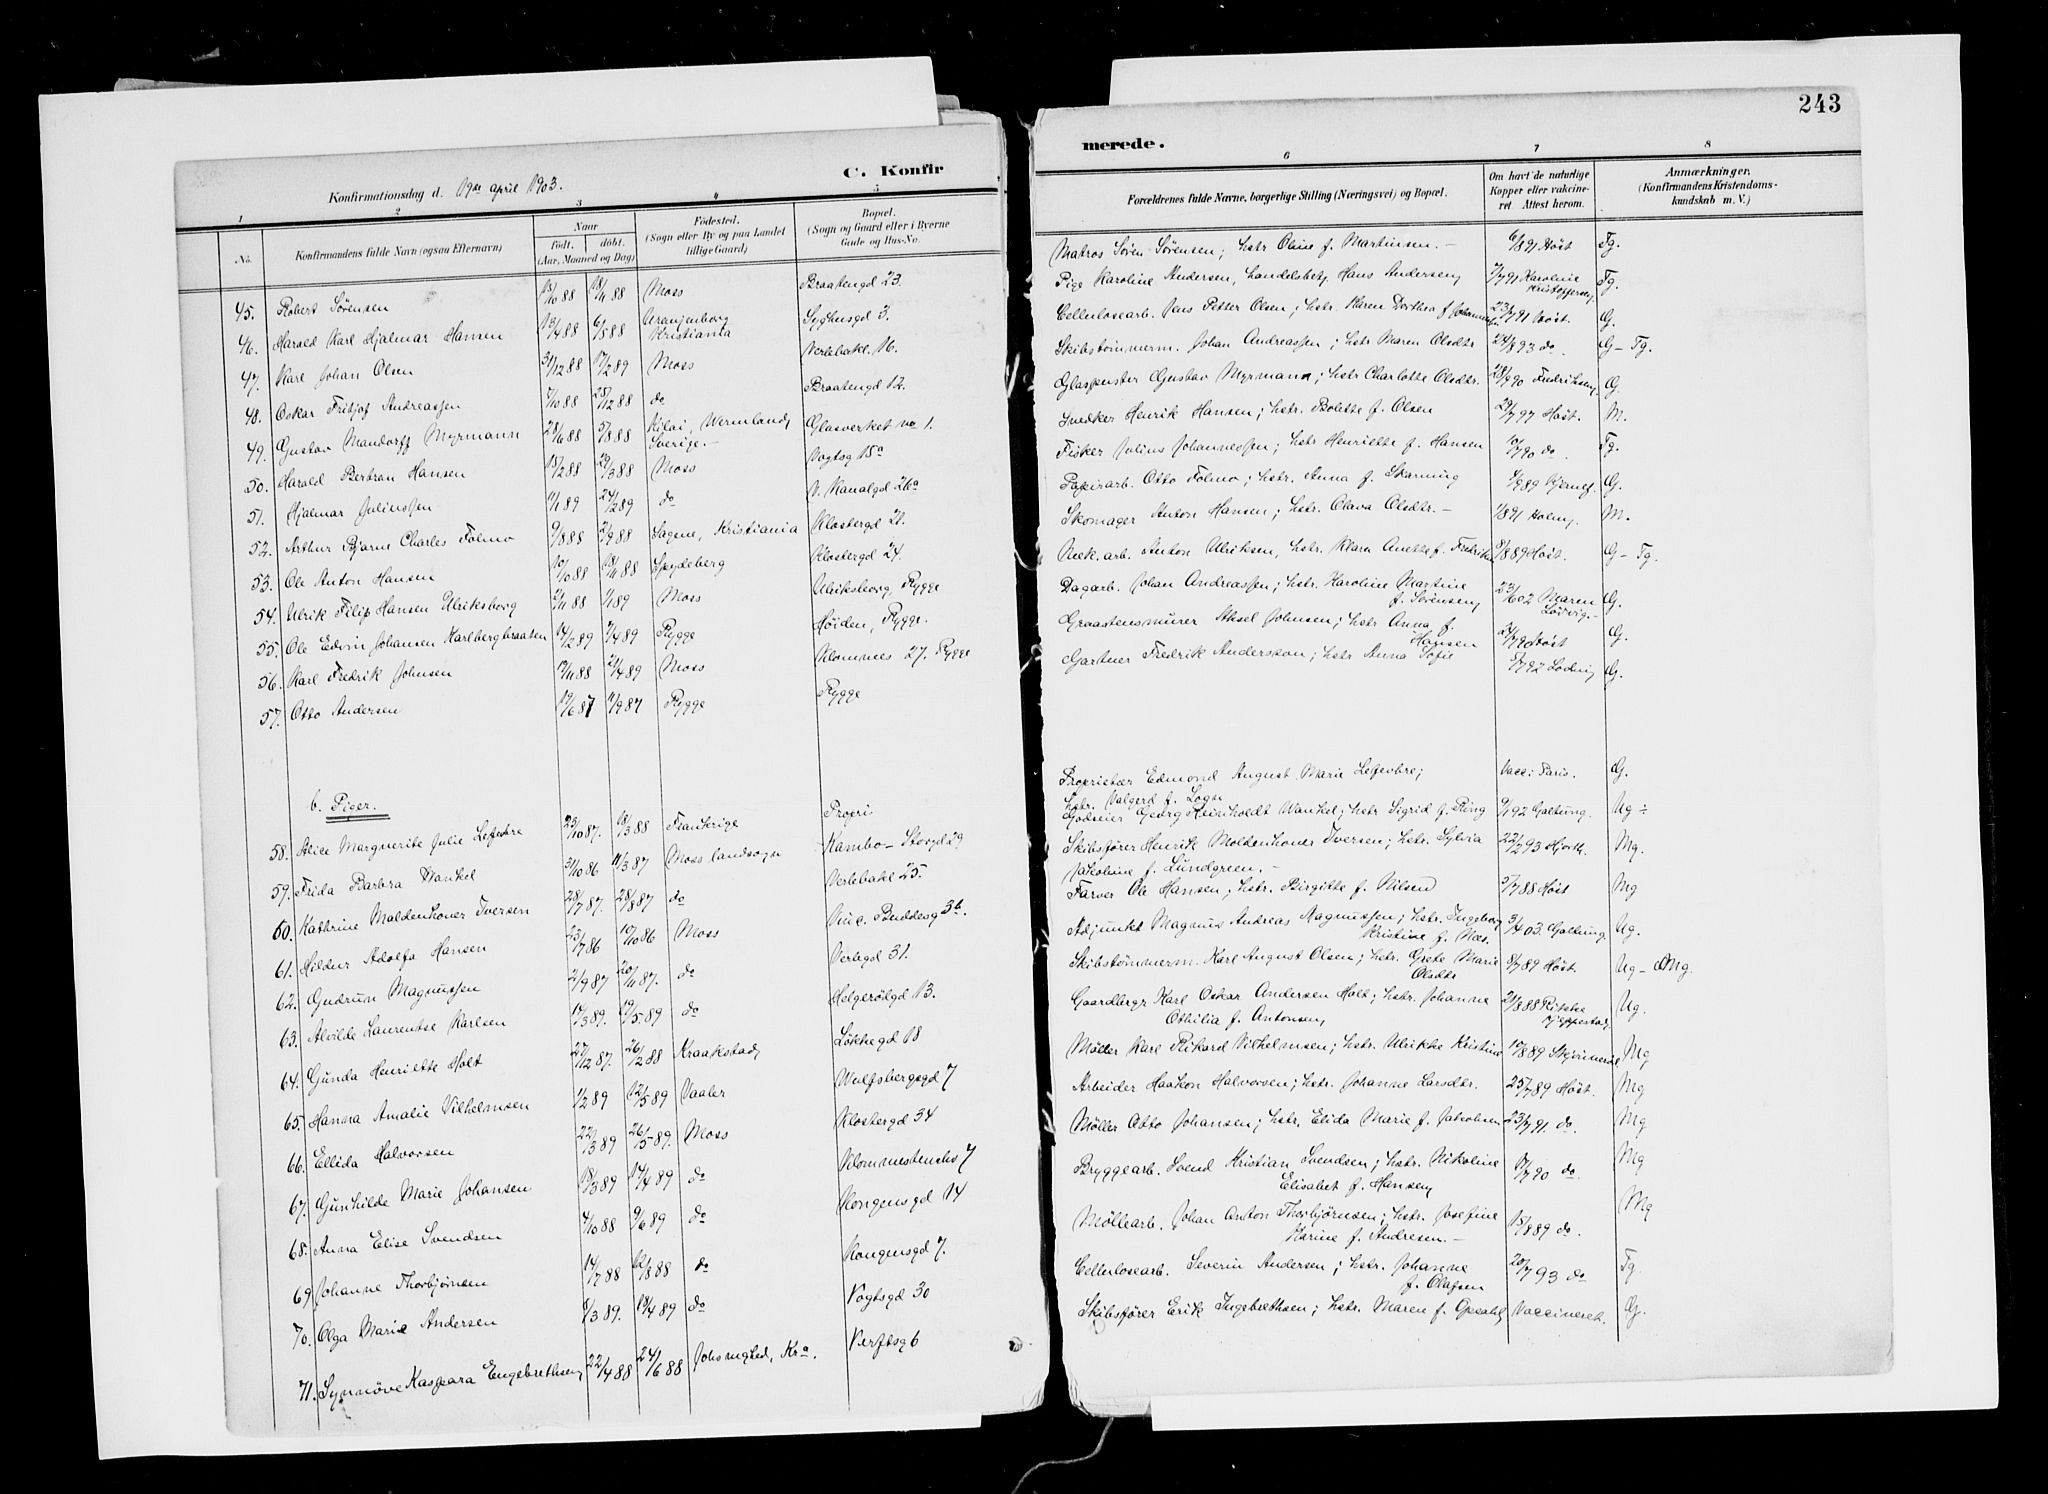 243
C. Konfir
merede.
Konfirmationsdag d. 19de april 1903.
1 2 3 4 5 6 7 8
No.
Konfirmandens fulde Navn (ogsaa Efternavn)
Naar
født. døbt.
(Aar, Maaned og Dag)
Fødested.
(Sogn eller By og paa Landet
tillige Gaard)
Bopæl.
(Sogn og Gaard eller i Byerne
Gade og Hus-No.
Forældrenes fulde Navne, borgerlige Stilling (Næringsvei) og Bopæl.
Om havt de naturlige
Kopper eller vakcine-
ret. Attest herom.
Anmærkninger.
(Konfirmandens Kristendoms-
kundskab m. V.)
45. Robert Sørensen 13/10 88 18/11 88 Moss Braatengd 23. Matros Søren Sørensen; hstr Oline f. Martinsen. – 6/8 91 Høst Tg.
46. Harald Karl Hjalmar Hansen 13/4 88 6/5 88 Uranienborg Kristiania Syghusgd 3. Pige Karoline Andersen, handelsbetj. Hans Andersen 7/7 91 Karoline Kristoffersen Tg.
47. Karl Johan Olsen 31/12 88 17/2 89 Moss Verlebakl. 16. Cellulosearb. Jens Petter Olsen; hstr. Karen Dorthea f Johannesen 23/7 91 Høst. G.
48. Oskar Fritjof Andreassen 7/10 88 25/12 88 do Braatengd 12. Skibstømmerm. Johan Andreassen; hstr Maren Olsdtr 24/8 93 do. G – Tg.
49. Gustav Mandorff Myrmann 28/6 88 5/8 88 Kilai, Wermland, Sverige. – Glasverket no 1. Glaspuster Gustav Myrmann; hstr Charlotte Olsdtr. 28/9 90 Fredriksen G.
50. Harald Bertran Hansen 15/2 88 29/3 88 Moss Vogtsg 15a Snedker Henrik Hansen; hstr. Bolette f. Olsen 29/7 97 Høst. M.
51. Hjalmar Juliussen 1/1 89 24/2 89 do V. Kanalgd 26a Fisker Julius Johannessen; hstr Henriette f. Hansen 10/7 90 do. Tg.
52. Arthur Bjarne Charles Folmo 9/8 88 2/9 88 Sagene, Kristiania Klostergd 21. Papirarb. Otto Folmo; hstr. Anna f. Skarning 4/9 89 Bjerneg. G.
53. Ole Anton Hansen 10/10 88 18/11 88 Spydeberg Klostergd 24. Skomager Anton Hansen; hstr. Olava Olsdtr. – 1/8 91 Holm. M.
54. Ulrik Filip Hansen Ulriksborg 2/11 88 1/1 89 Moss Ulriksborg, Rygge Mek. arb. Anton Ulriksen, hstr. Klara Anette f. Fredriksen 8/8 89 Høst. G – Tg.
55. Ole Edvin Johansen Karlbergbraaten 14/2 89 7/4 89 Rygge Høiden, Rygge. Dagarb. Johan Andreassen; hstr. Karoline Martine f. Sørensen 23/6 02 Maren Lodvig. – G.
56. Karl Fredrik Johnsen 19/11 88 21/4 89 Moss Klommes 27. Rygge Graastensmurer Aksel Johnsen; hstr Anna f. Hansen 24/7 90 Høst G.
57. Otto Andersen 19/6 87 11/9 87 Rygge Rygge Gartner Fredrik Andersson; hstr Anna Sofie 5/7 92 Lodvig G.
b. Piger.
58. Alice Marguerite Julie Lefevbre 23/10 87. 18/3 88 Frankrige Propri Proprietær Edmond August Marie Lefevbre; hstr. Valgerd f. Sogn Vacc: Paris. G.
59. Frida Barbra Wankel 31/10 86 11/3 87 Moss landsogn Kambo – Storgd 29 Godseier Georg Reinholdt Wankel; hstr Sigrid f. Ring 9/1 92 Galtung. Ug ÷
60. Kathrine Moldenhouer Iversen 28/7 87. 28/8 87 do Verlebakl 25. Skibsfører Henrik Moldenhouer Iversen; hstr. Sylvia Jakobine f. Lundgreen. – 22/2 93 Hjorth. Mg.
61. Hildur Adolfa Hansen 23/7 86 17/10 86 Moss Nic. Buddesg 3b. Farver Ole Hansen; hstr. Birgitte f. Nilsen 5/7 88 Høst Mg
62. Gudrun Magnussen 2/9 87 20/11 87. do Verlegd 31. Adjunkt Magnus Andreas Magnussen; hstr. Ingeborg Kristine f. Næs. 3/4 03. Galtung. Ug.
63. Alvilde Laurentse Karlsen 14/3 89. 19/5 89 do Helgerødgd 13. Skibstømmerm. Karl August Olsen; hstr. Grete Marie Olsdtr 8/7 89 Høst. Ug – Mg.
64. Gunda Henriette Holt 27/12 87. 26/2 88 Kraakstad Løkkegd 18 Gaardbrgr Karl Oskar Andersen Holt; hstr. Johanne Othilia f. Antonsen 21/8 88 Ug.
65. Hanna Amalie Vilhelmsen 1/2 89 12/5 89 Vaaler Wulfsbergsgd 7 Møller Karl Rikard Vilhelmsen; hstr. Ulrikke Kristine 17/8 89 Mg
66. Ellida Halvorsen 22/3 89 26/5 89. Moss Klostergd 34 Arbeider Haakon Halvorsen; hstr. Johanne Larsdtr. 25/7 89 Høst. Mg
67. Gunhilde Marie Johansen 18/3 89 14/4 89 do Klommestensbo 7 Møller Otto Johansen; hstr. Elida Marie f. Jakobsen 23/7 91. do. Mg
68. Anna Elise Svendsen 4/10 88 9/6 89 do Kongensgd 14 Bryggearb. Svend Kristian Svendsen; hstr. Nikoline Elisabet f. Hansen 17/7 90 do. Mg
69. Johanne Thorbjørnsen 14/7 88 12/8 88 do Kongensgd 7. Møllearb. Johan Anton Thorbjørnsen; hstr. Josefine Karine f. Andresen. – 15/8 89 do. Mg
70. Olga Marie Andersen 1/3 89. 18/4 89 do Vogtsgd 30 Cellulosearb. Severin Andersen; hstr. Johanne f. Olafsen 20/7 93 do Tg.
71. Synnöve Kaspara Engebrethsen 22/4 88 24/6 88 Kra. Verftsg 6 Skibsfører Erik Ingebrethsen; hstr. Maren f. Opsahl Vaccineret. G.